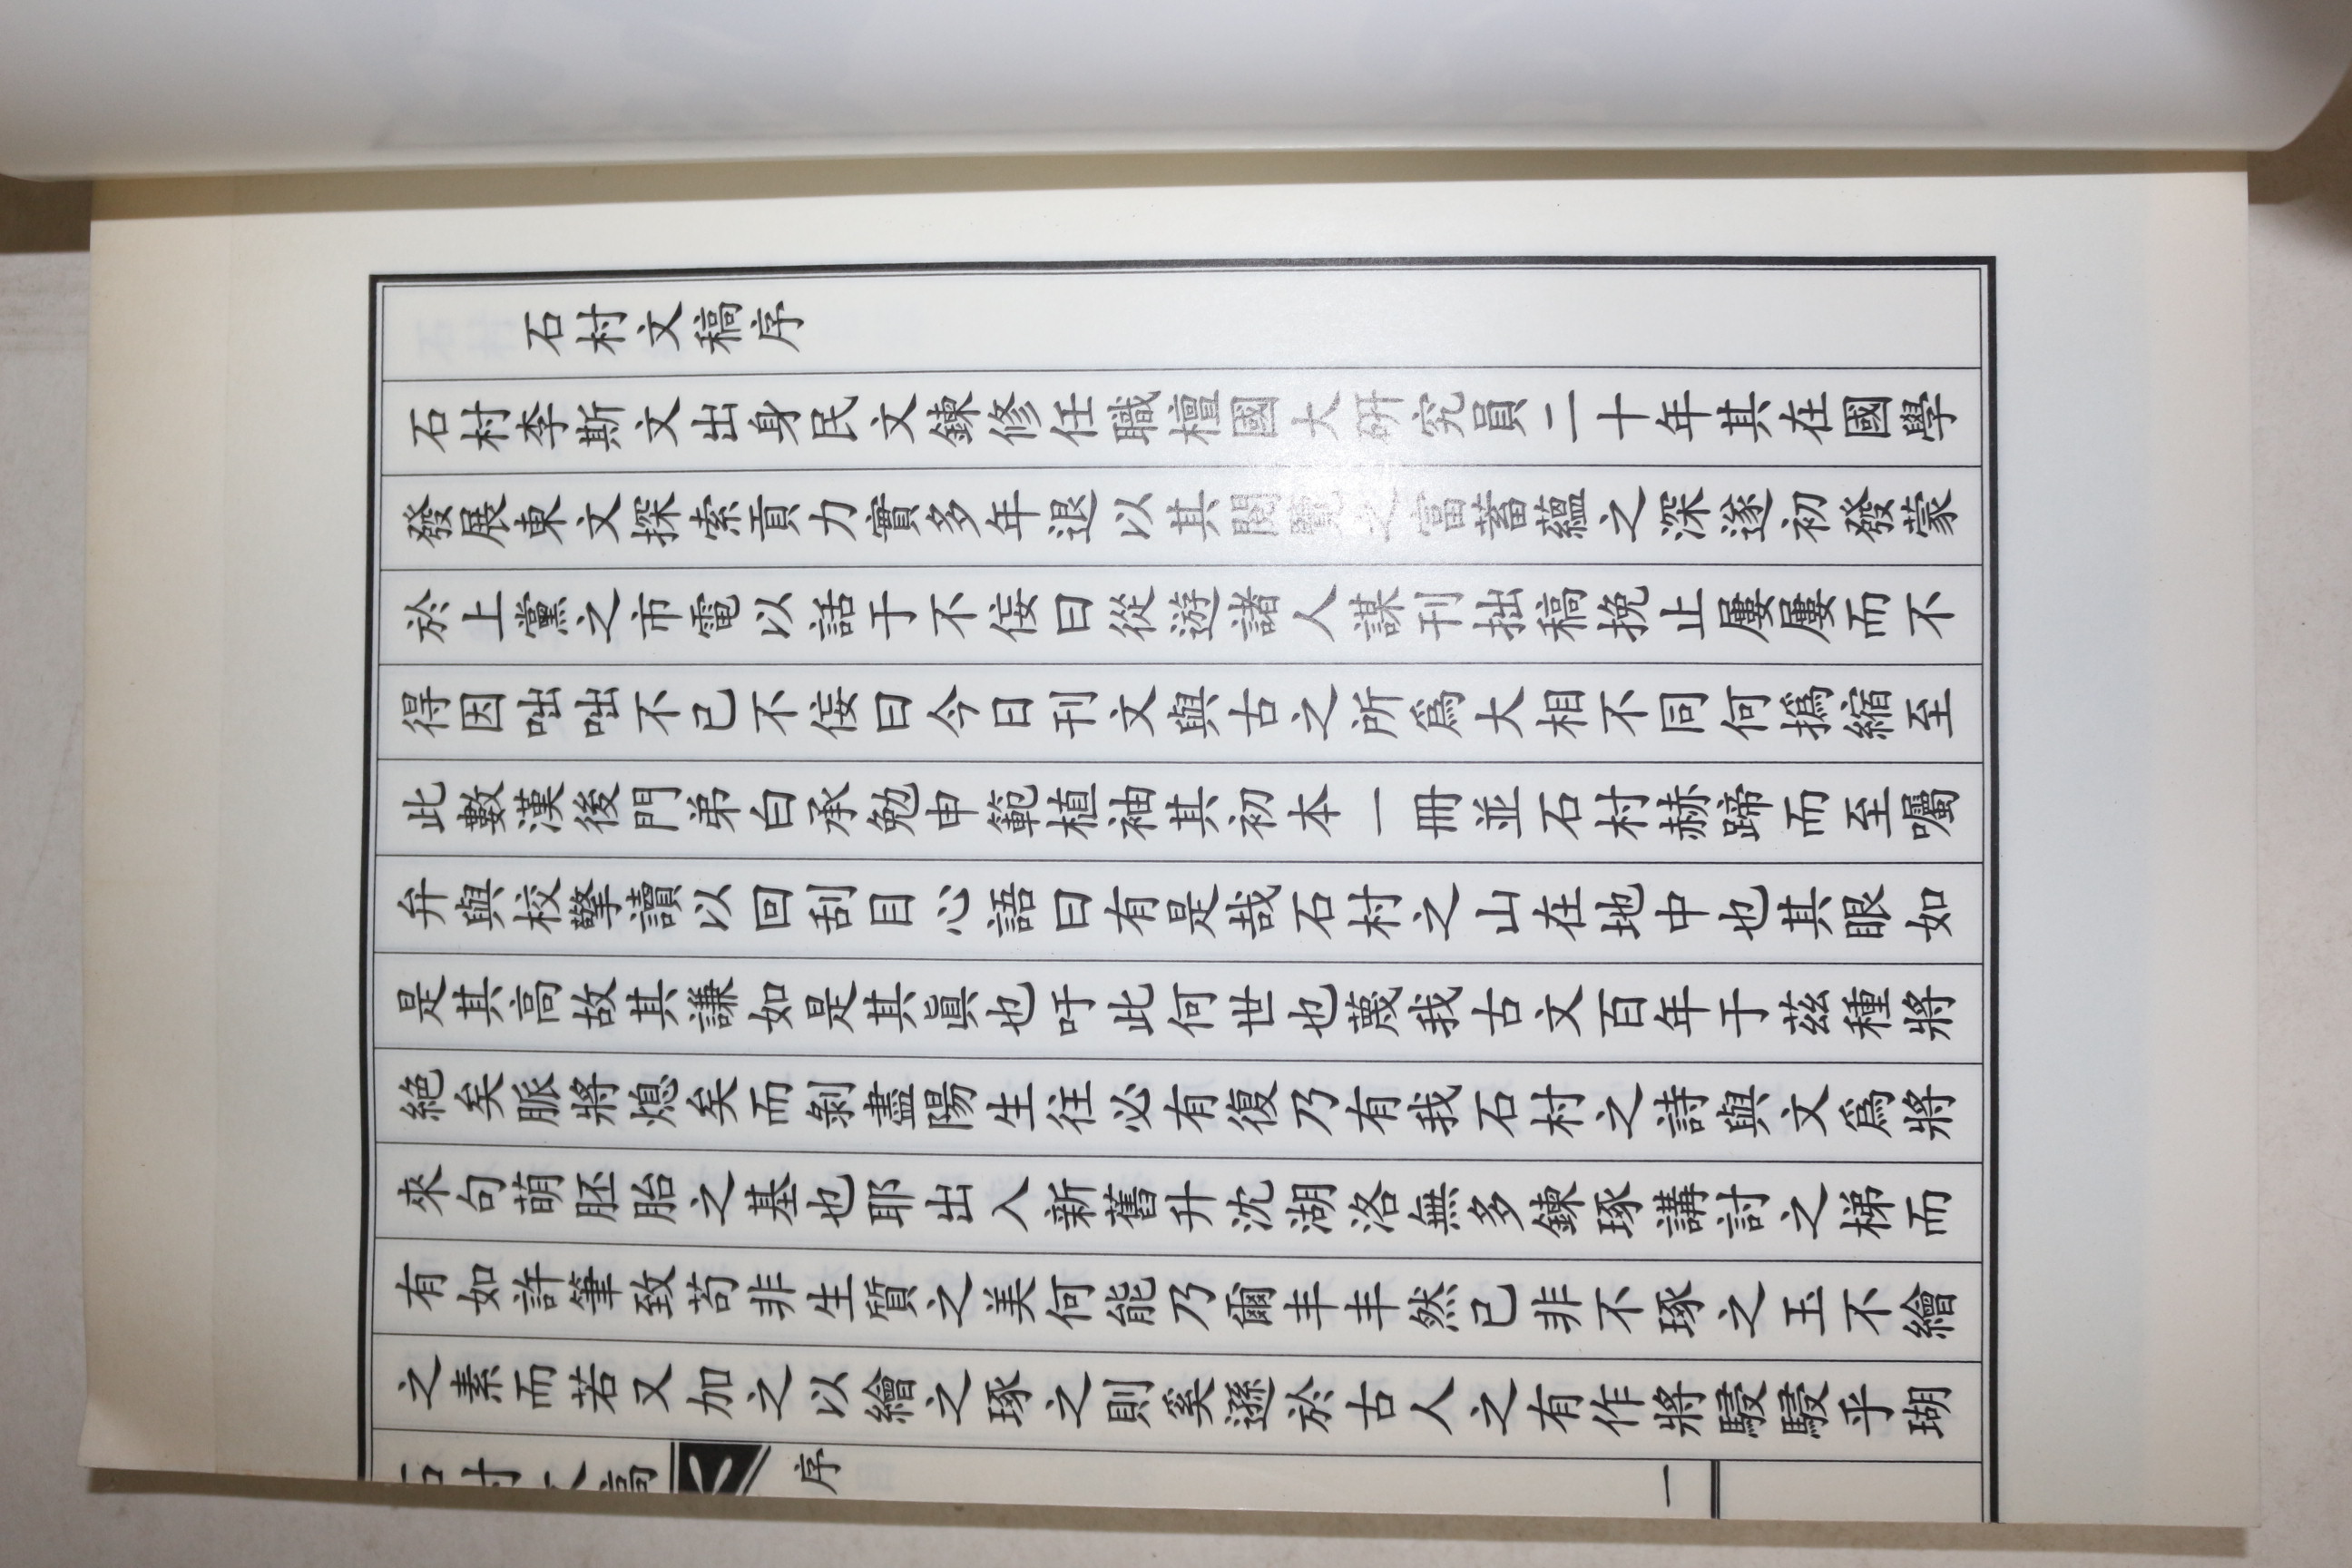 石村文稿序
石村李斯文出身民文鍊修任職檀國大硏究員二十年其在國學
發展東文探索貢力實多年退以其閱覽之富蓄蘊之深遂初發蒙
於上黨之市電以話于不侫曰從遊諸人謀刊拙稿挽止屢屢而不
得因咄咄不已不侫曰今日刊文與古之所爲大相不同何撝縮至
此數漢後門弟白承勉申範植袖其初本一冊並石村赫蹄而至囑
弁與校擎讀以回刮目心語曰有是哉石村之山在地中也其眼如
是其高故其謙如是其眞也吁此何世也蔑我古文百年于茲種將
絶矣脈將熄矣而剝盡陽生往必有復乃有我石村之詩與文爲將
來句萌胚胎之基也耶出入新舊升沈湖洛無多鍊琢講討之梯而
有如許筆致苟非生質之美何能乃爾丰丰然已非不琢之玉不繪
之素而若又加之以繪之琢之則奚遜於古人之有作將駸駸乎瑚
石村文稿 序 一